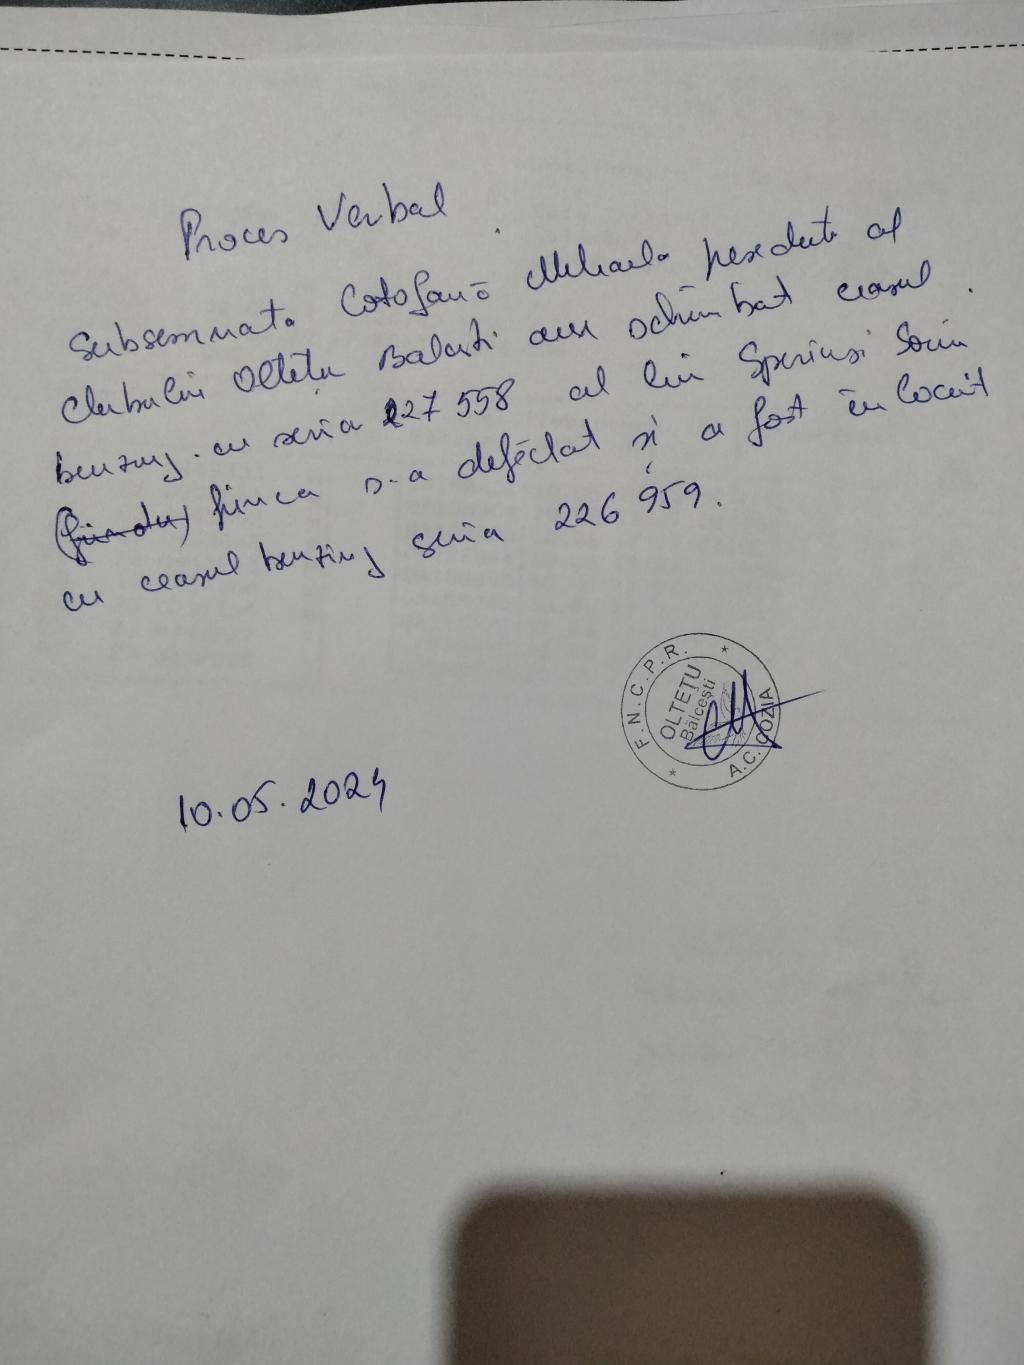 Proces Verbal
Subsemnata Cotofană Mihaela presedinte al
clubului Oltețu Balcesti am schimbat ceasul
benzing. cu seria 227 558 al lui Speriusi Sorin
(fiindu) fiinca s-a defectat si a fost înlocuit
cu ceasul benzing seria 226 959.
F.N.C.P.R.
OLTEȚU
Bălcești
A.C. COZIA
10.05.2024